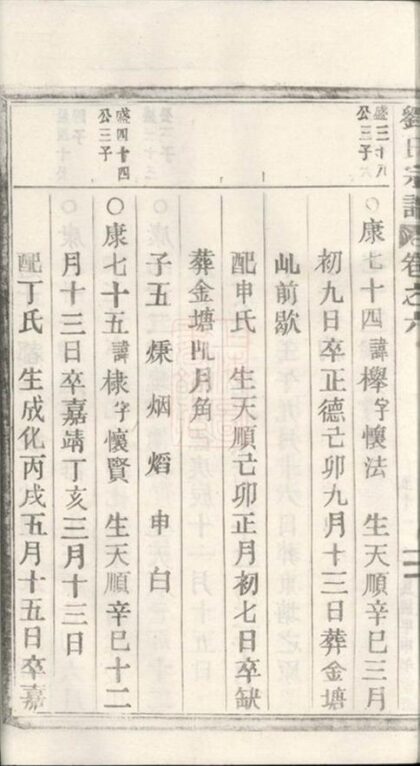 劉氏宗譜卷之六
盛三十八
公三子
○康七十四諱櫸字懷法　生天順辛巳三月
初九日卒正德己卯九月十三日葬金塘
此前歇
配申氏　生天順己卯正月初七日卒缺
葬金塘月角
子五　爌　烟　熖　申　白
盛四十四
公三子
○康七十五諱棣字懷賢　生天順辛巳十二
月十三日卒嘉靖丁亥三月十三日
配丁氏　生成化丙戌五月十五日卒嘉